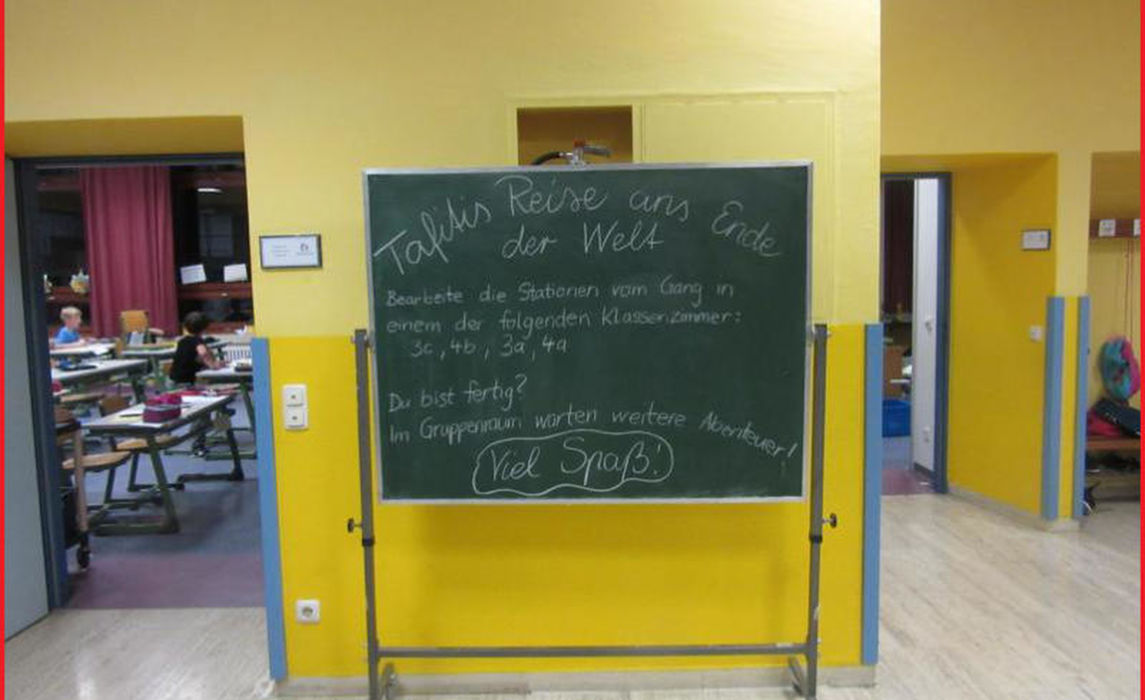 Tafitis Reise ans Ende
der Welt
Bearbeite die Stationen vom Gang in
einem der folgenden Klassenzimmer:
3c, 4b, 3a, 4a
Du bist fertig?
Im Gruppenraum warten weitere Abenteuer!
Viel Spaß!